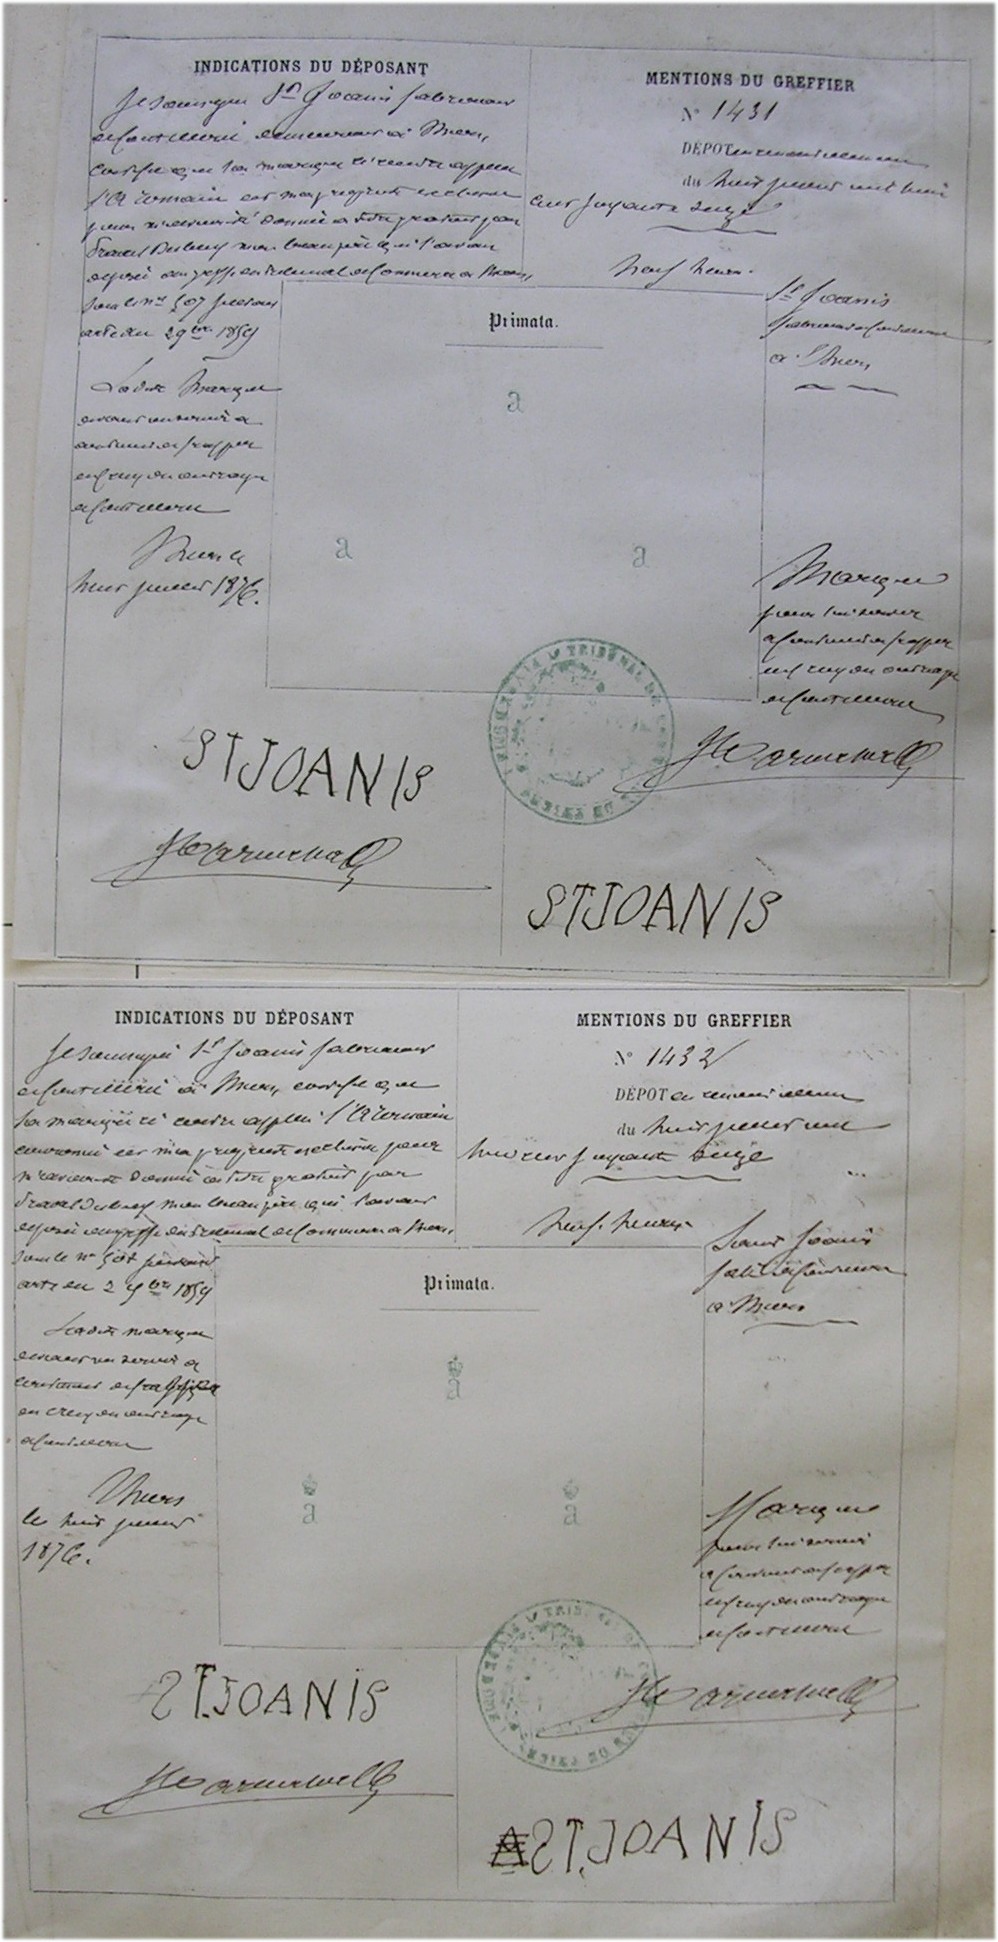 INDICATIONS DU DÉPOSANT
Je soussigné St Joanis fabricant
de coutellerie demeurant à Thiers,
certifie que la marque ci contre appelée
l'A romain est ma propriété exclusive
pour m'avoir été donnée à titre gratuit par
mon beau père qui l'avait
déposée au greffe du tribunal de Commerce de Thiers,
sous le no 507 suivant
acte du 29bre 1859
Ladite marque
devant me servir à
continuer de frapper
de coutellerie
Thiers le
huit janvier 1876.
STJOANIS
MENTIONS DU GREFFIER
No 1431
DÉPOT en renouvellement
du huit janvier mil huit
cent soixante seize
neuf heures.
St Joanis
fabricant de coutellerie
à Thiers
Primata.
a
a
a
Marque
pour lui servir
à continuer de frapper
de coutellerie
TRIBUNAL DE
STJOANIS
INDICATIONS DU DÉPOSANT
Je soussigné St Joanis fabricant
de coutellerie à Thiers, certifie que
la marque ci contre appelée l'A romain
couronné est ma propriété exclusive pour
m'avoir été donnée à titre gratuit par
mon beau père qui l'avait
déposée au greffe du tribunal de Commerce de Thiers,
sous le no 507 suivant
acte du 2 9bre 1859
Ladite marque
devant me servir à
continuer de frapper
de coutellerie
Thiers
le huit janvier
1876.
STJOANIS
MENTIONS DU GREFFIER
No 1432
DÉPOT en renouvellement
du huit janvier mil
huit cent soixante seize
neuf heures
Saint Joanis
fabricant de coutellerie
à Thiers
Primata.
a
a
a
Marque
pour lui servir
à continuer de frapper
de coutellerie
STJOANIS